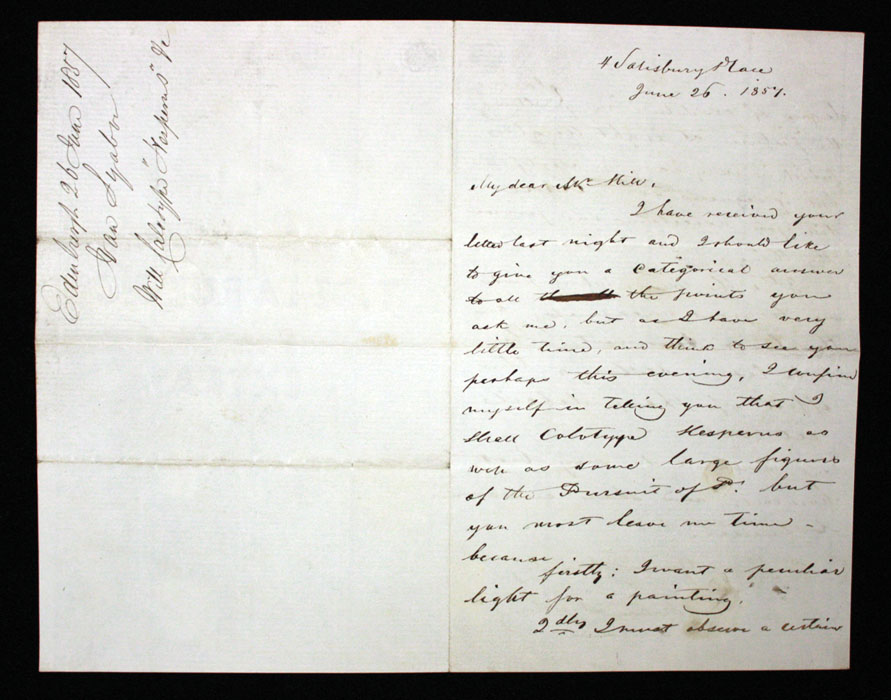 Edinburgh 26 June 1857
Ivan Szabo
Will Calotype "Hesperus" &c
4 Salisbury Place
June 26. 1857.
My dear Mr Hill,
I have received your
letter last night and I should like
to give you a categorical answer
to all the points you
ask me, but as I have very
little time, and think to see you
perhaps this evening, I confine
myself in telling you that I
shall Colotype Hesperus as
well as some large figures
of the Pursuit of P. but
you most leave me time -
because
firstly: I want a peculiar
light for a painting.
2dly I must observe a certain